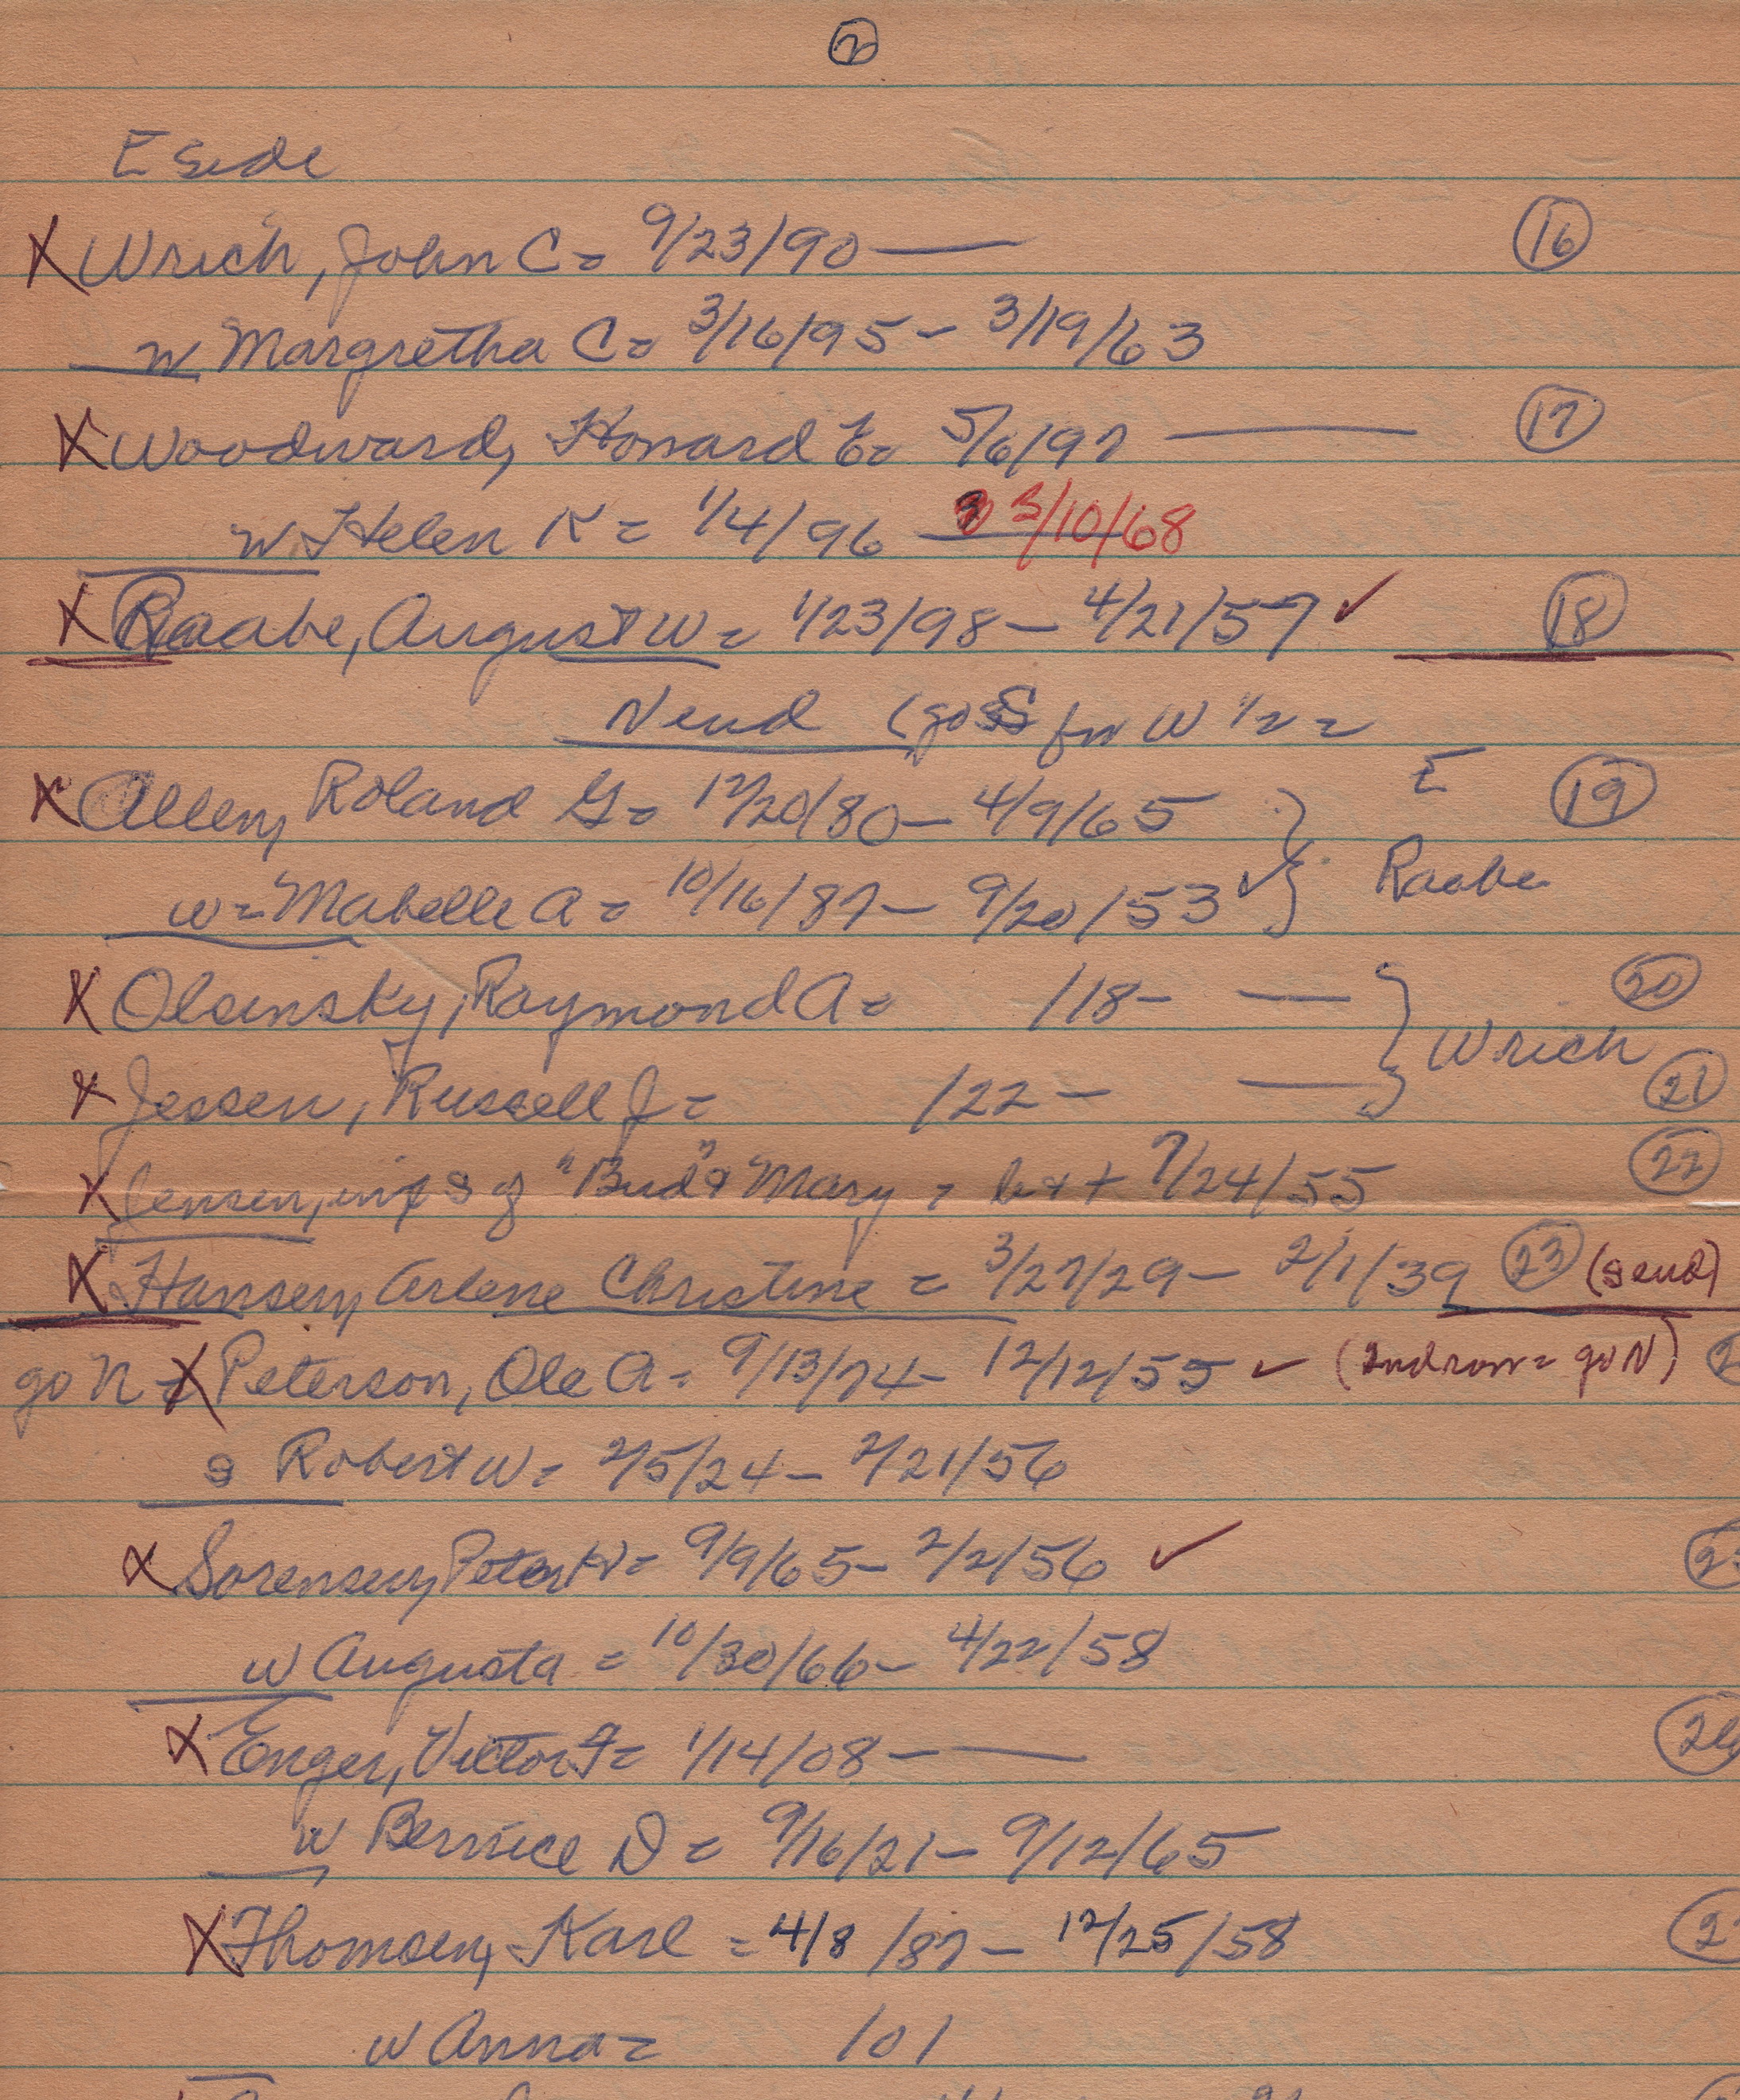 2
E Side
X Wrich, John C = 9/23/90 — 16
w Margretha C = 3/16/95 - 3/19/63
X Woodward, Howard E = 5/6/97 — 17
w Helen K = 1/4/96 3/10/68
X Raabe, August W = 1/23/98 - 4/21/57 ✓ 18
N end (go S for W 1/2 =
X Allen, Roland G = 12/20/80 - 4/9/65 } E 19
w = Mabelle A = 10/16/87 - 9/20/53 ✓ } Raabe
X Olsensky, Raymond A = /18 - — } 20
Wrich
X Jessen, Russell J = /22 - — } 21
X Jensen, inf s of "Bud" & Mary = b + + 7/24/55 22
X Hansen, Arlene Christine = 3/27/29 - 2/1/39 23 (s end)
go N = X Peterson, Ole A = 9/13/74 - 12/12/55 ✓ (2nd row = go N) 2
s Robert W = 2/5/24 - 2/21/56
X Sorensen, Peter N = 9/9/65 - 2/2/56 ✓ 25
w Augusta = 10/30/66 - 4/22/58
X Enger, Victor F = 1/14/08 - — 26
w Bernice D = 9/16/21 - 9/12/65
X Thomsen, Karl = 4/8/87 - 12/25/58 2
w Anna = /01